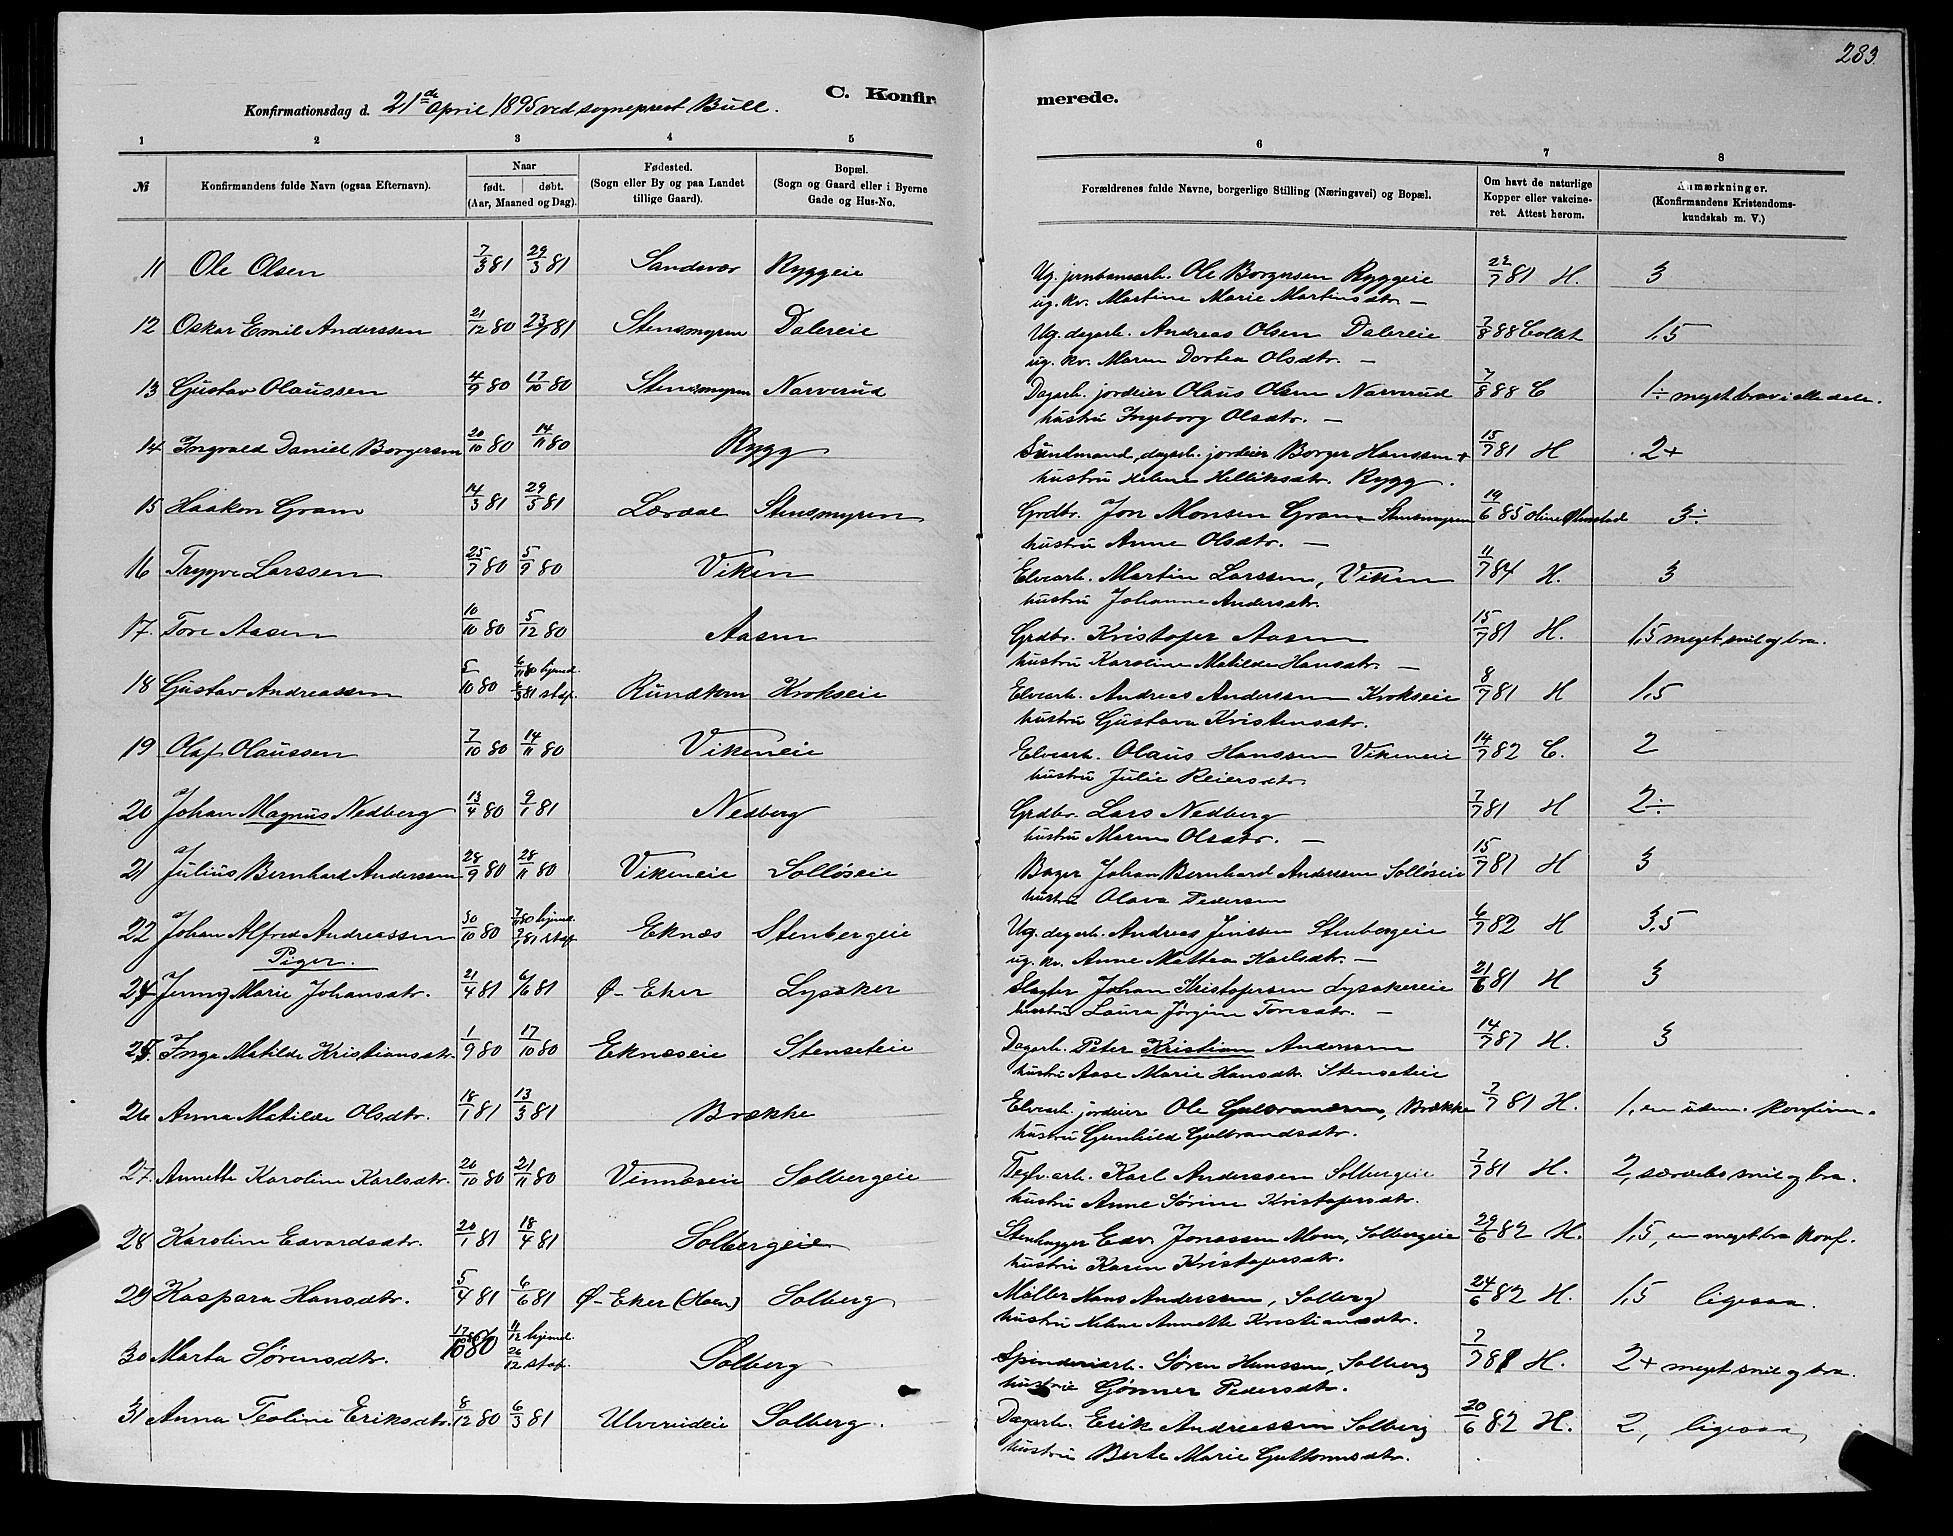 283.
C. Konfirmerede.
Konfirmationsdag d. 21de April 1895 ved sogneprest Bull.
1 2 3 4 5 6 7 8
№ Konfirmandens fulde Navn (ogsaa Efternavn). Naar født. døbt. (Aar, Maaned og Dag). Fødested. (Sogn eller By og paa Landet tillige Gaard). Bopæl. (Sogn og Gaard eller i Byerne Gade og Hus-No. Forældrenes fulde Navne, borgerlige Stilling (Næringsvei) og Bopæl. Om havt de naturlige Kopper eller vakcineret. Attest herom. Anmærkninger. (Konfirmandens Kristendomskundskab m. V.)
11 Ole Olsen 7/3 81 29/3 81 Sandsvær Ryggeie Ug. jernbanearb. Ole Borgersen Ryggeie 22/7 81 H. 3
ug. kv. Martine Marie Martinsdtr. —
12 Oskar Emil Anderssen 21/12 80 23/1 81 Stensmyren Dalereie Ug. dagarb. Andreas Olsen Dalereie 7/8 88 Coldt 1,5
ug. kv. Maren Dortea Olsdtr. —
13 Gustav Olaussen 4/9 80 17/10 80 Stensmyren Narverud Dagarb. jordeier Olaus Olsen Narverud 7/8 88 C 1÷ meget brav i alle dele.
hustru Ingeborg Olsdtr. —
14 Ingvald Daniel Borgersen 20/10 80 14/11 80 Rygg dagarb. jordeier Borger Hanssen + 15/7 81 H 2+
hustru Helene Helliksdtr. Rygg.
15 Haakon Gram 14/3 81 29/5 81 Lærdal Stensmyren Grdbr. Jon Monsen Gram Stensmyren 19/6 85 3÷
hustru Anne Olsdtr. —
16 Trygve Larssen 25/7 80 5/9 80 Viken Elvearb. Martin Larssen, Viken 11/7 84 H. 3
hustru Johanne Andersdtr.
17. Tore Aasen 10/10 80 5/12 80 Aasen Grdbr. Kristofer Aasen 15/7 81 H. 1,5 meget snil og bra.
hustru Karoline Matilde Hansdtr. —
18 Gustav Andreassen 5/10 80 6/11 80 hjemd. 81 staf. Rundtom Krokseie Elvearb. Andreas Anderssen Krokseie 8/7 81 H 1,5
hustru Gustava Kristensdtr.
19 Olaf Olaussen 7/10 80 14/11 80 Vikeneie Elvearb. Olaus Hanssen Vikeneie 14/7 82 C. 2
hustru Julie Reiersdtr.
20 Johan Magnus Nedberg 13/4 80 9/1 81 Nedberg Grdbr. Lars Nedberg 7/7 81 H 2÷
hustru Maren Olsdtr. —
21 Julius Bernhard Anderssen 28/9 80 28/11 80 Vikeneie Solløseie Bager Johan Bernhard Anderssen Solløseie 15/7 81 H 3
hustru Olava Pedersen
22 Johan Alfred Andreassen 30/10 80 80 hjemd. 81 staf. Eknæs Stenbergeie Ug. dagarb. Andreas Jenssen Stenbergeie 6/7 82 H 3,5
ug. kv. Anne Mattea Karlsdtr. —
Piger.
24 Jenny Marie Johansdtr. 21/4 81 6/6 81 Ø-Eker Lysaker Slagter Johan Kristofersen Lysakereie 21/6 81 H 3
hustru Laura Jørgine Toresdtr. —
25. Inga Matilde Kristiansdtr. 1/9 80 17/10 80 Eknæseie Stenseteie Dagarb. Peter Kristian Anderssen 14/7 87 H. 3
hustru Aase Marie Hansdtr. Stenseteie
26 Anna Matilde Olsdtr. 18/1 81 13/3 81 Brække Elvearb. jordeier Ole Gulbrandsen, Brække 7/7 81 H. 1, en udm. konfirm.
hustru Gunhild Gulbrandsdtr.
27. Annette Karoline Karlsdtr. 20/10 80 21/11 80 Vinnæseie Solbergeie Teglv.arb. Karl Anderssen Solbergeie 7/7 81 H. 2, særdeles snil og bra.
hustru Anne Sørine Kristofersdtr.
28 Karoline Edvardsdtr. 20/1 81 18/4 81 Solbergeie Stenhugger Edv. Jonassen Moen, Solbergeie 29/6 82 H. 1,5, en meget bra konf.
hustru Karen Kristofersdtr.
29 Kaspara Hansdtr. 5/4 81 6/6 81 Ø-Eker (Hoen) Solberg Møller Hans Anderssen, Solberg 24/6 82 H. 1,5 ligesaa.
hustru Helene Annette Kristiansdtr.
30 Marta Sørensdtr. 17/10 80 11/12 hjemd. 26/12 staf. Solberg Spinderiarb. Søren Hanssen, Solberg 7/7 81 H. 2+ meget snil og bra.
hustru Gønner Pedersdtr.
31 Anna Teoline Eriksdtr. 8/12 80 6/3 81 Ulverudeie Solberg. Dagarb. Erik Andreassen Solberg 20/6 82 H. 2, ligesaa
hustru Berte Marie Guttormsdtr.